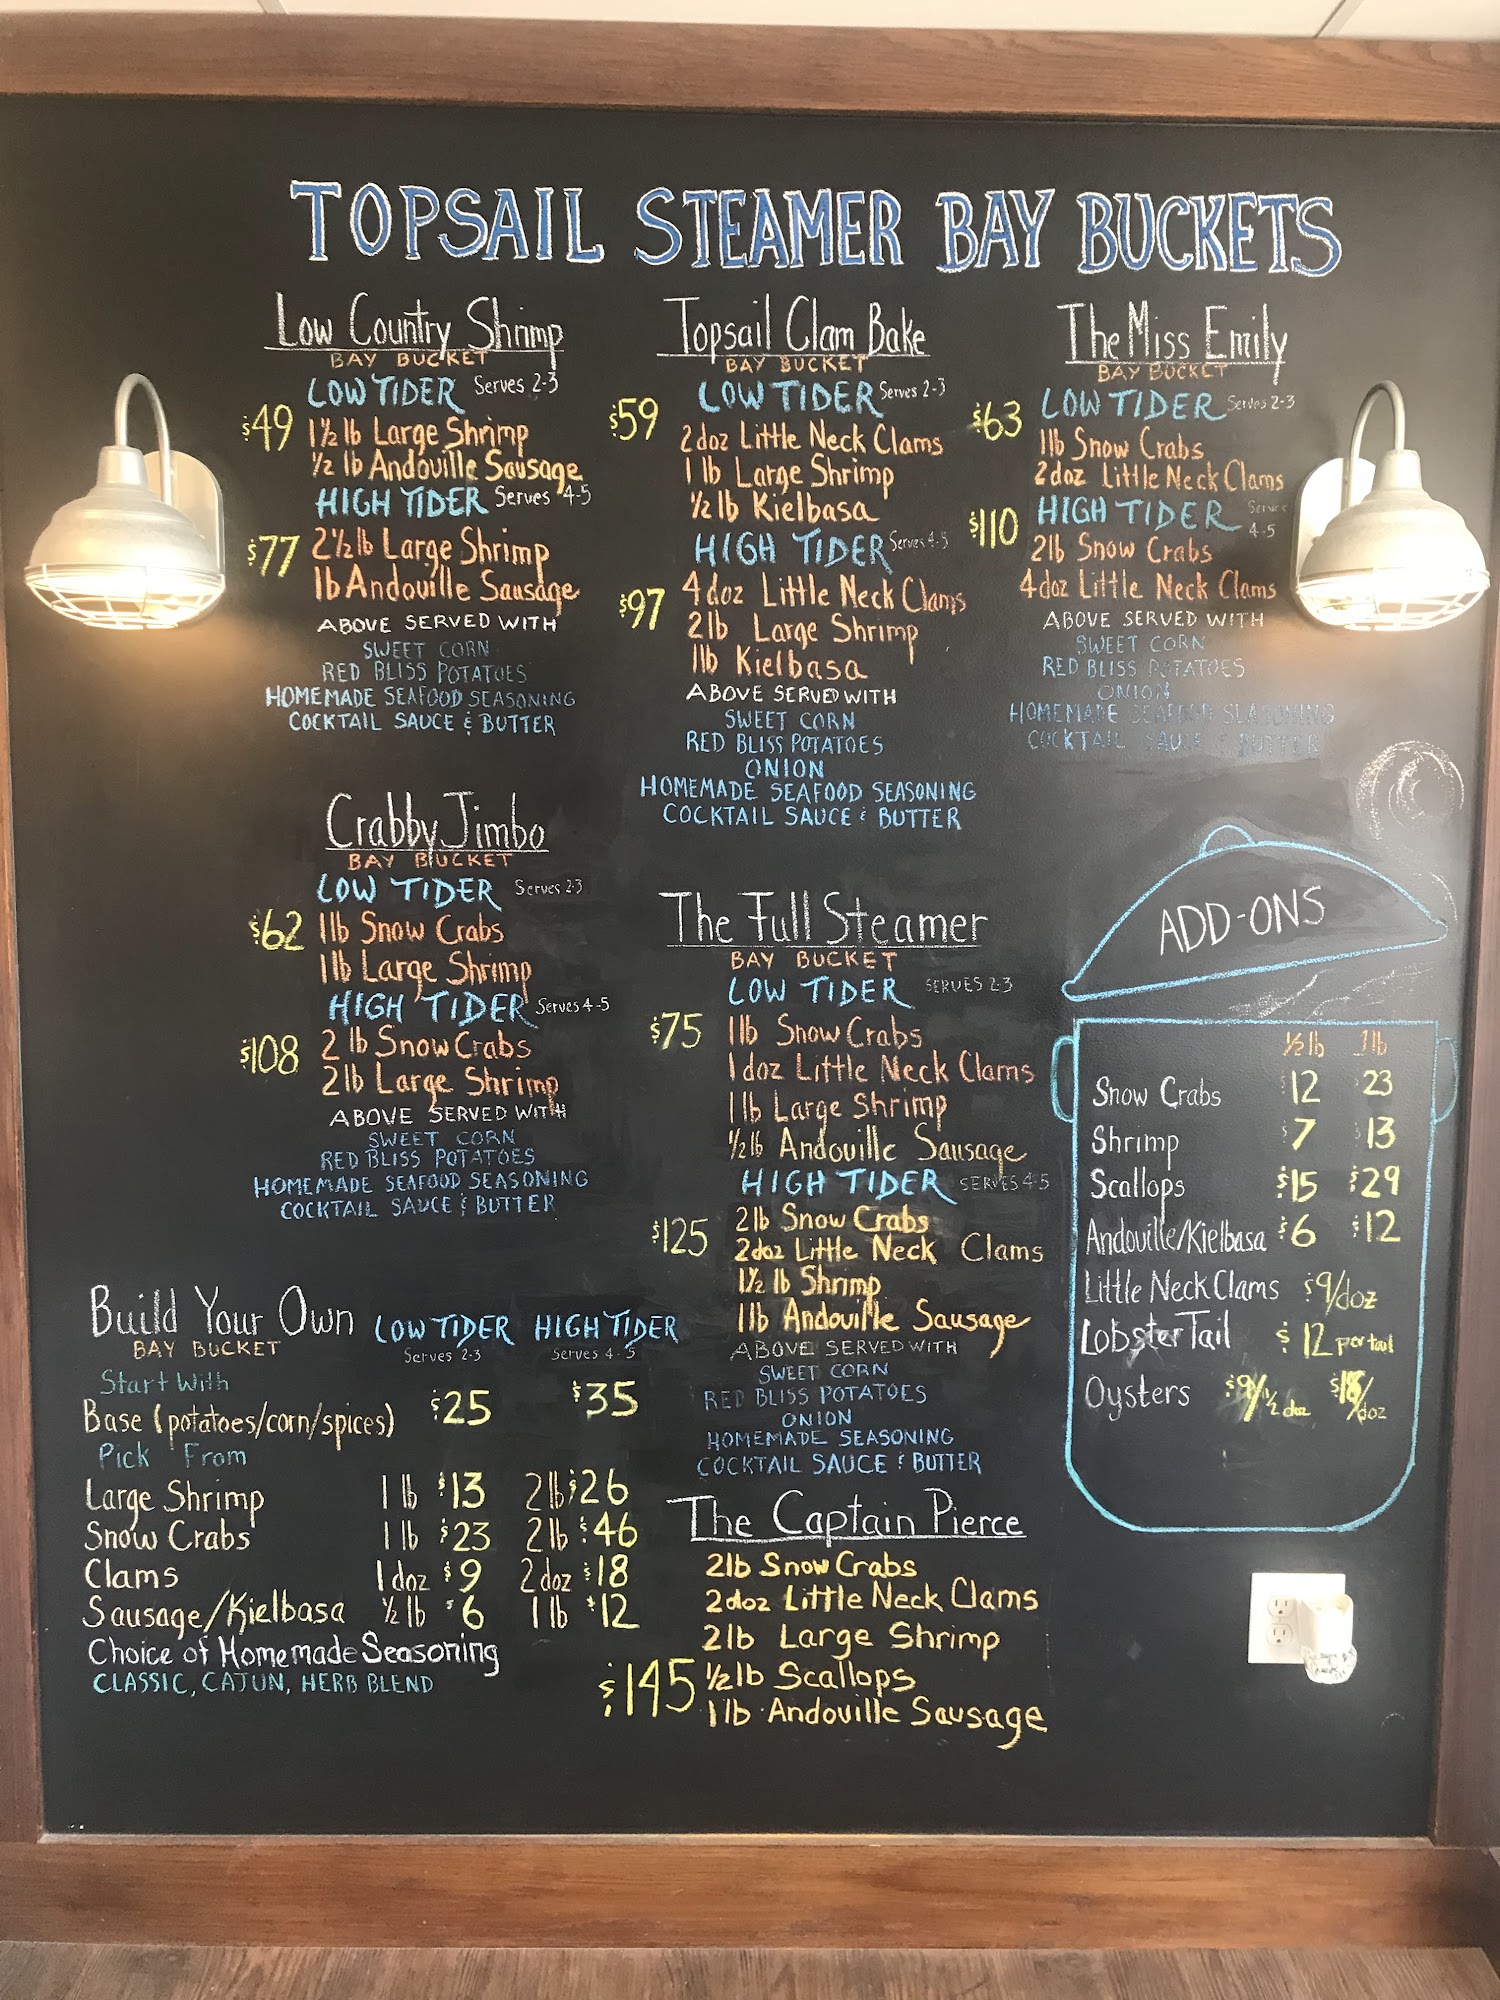 TOPSAIL STEAMER BAY BUCKETS
Low Country Shrimp
BAY BUCKET
LOW TIDER Serves 2-3
$49 1½ lb Large Shrimp
½ lb Andouille Sausage
HIGH TIDER Serves 4-5
$77 2½ lb Large Shrimp
1lb Andouille Sausage
ABOVE SERVED WITH
SWEET CORN
RED BLISS POTATOES
HOMEMADE SEAFOOD SEASONING
COCKTAIL SAUCE & BUTTER
Topsail Clam Bake
BAY BUCKET
LOW TIDER Serves 2-3
$59 2doz Little Neck Clams
1 lb Large Shrimp
½ lb Kielbasa
HIGH TIDER Serves 4-5
$97 4doz Little Neck Clams
2lb Large Shrimp
1lb Kielbasa
ABOVE SERVED WITH
SWEET CORN
RED BLISS POTATOES
ONION
HOMEMADE SEAFOOD SEASONING
COCKTAIL SAUCE & BUTTER
The Miss Emily
BAY BUCKET
LOW TIDER Serves 2-3
$63 1lb Snow Crabs
2doz Little Neck Clams
HIGH TIDER Serves 4-5
$110 2lb Snow Crabs
4doz Little Neck Clams
ABOVE SERVED WITH
SWEET CORN
RED BLISS POTATOES
ONION
HOMEMADE SEAFOOD SEASONING
COCKTAIL SAUCE & BUTTER
Crabby Jimbo
BAY BUCKET
LOW TIDER Serves 2-3
$62 1lb Snow Crabs
1lb Large Shrimp
HIGH TIDER Serves 4-5
$108 2 lb Snow Crabs
2lb Large Shrimp
ABOVE SERVED WITH
SWEET CORN
RED BLISS POTATOES
HOMEMADE SEAFOOD SEASONING
COCKTAIL SAUCE & BUTTER
The Full Steamer
BAY BUCKET
LOW TIDER SERVES 2-3
$75 1lb Snow Crabs
1doz Little Neck Clams
1lb Large Shrimp
½ lb Andouille Sausage
HIGH TIDER SERVES 4-5
$125 2lb Snow Crabs
2doz Little Neck Clams
1½ lb Shrimp
1lb Andouille Sausage
ABOVE SERVED WITH
SWEET CORN
RED BLISS POTATOES
ONION
HOMEMADE SEASONING
COCKTAIL SAUCE & BUTTER
ADD-ONS
½ lb 1lb
Snow Crabs $12 $23
Shrimp $7 $13
Scallops $15 $29
Andouille/Kielbasa $6 $12
Little Neck Clams $9/doz
Lobster Tail $12 per tail
Oysters $9/½ doz $18/doz
Build Your Own LOW TIDER HIGH TIDER
BAY BUCKET Serves 2-3 Serves 4-5
Start With
Base (potatoes/corn/spices) $25 $35
Pick From
Large Shrimp 1 lb $13 2lb $26
Snow Crabs 1 lb $23 2lb $46
Clams 1doz $9 2doz $18
Sausage/Kielbasa ½ lb $6 1 lb $12
Choice of Homemade Seasoning
CLASSIC, CAJUN, HERB BLEND
The Captain Pierce
2lb Snow Crabs
2doz Little Neck Clams
2lb Large Shrimp
$145 ½ lb Scallops
1 lb Andouille Sausage